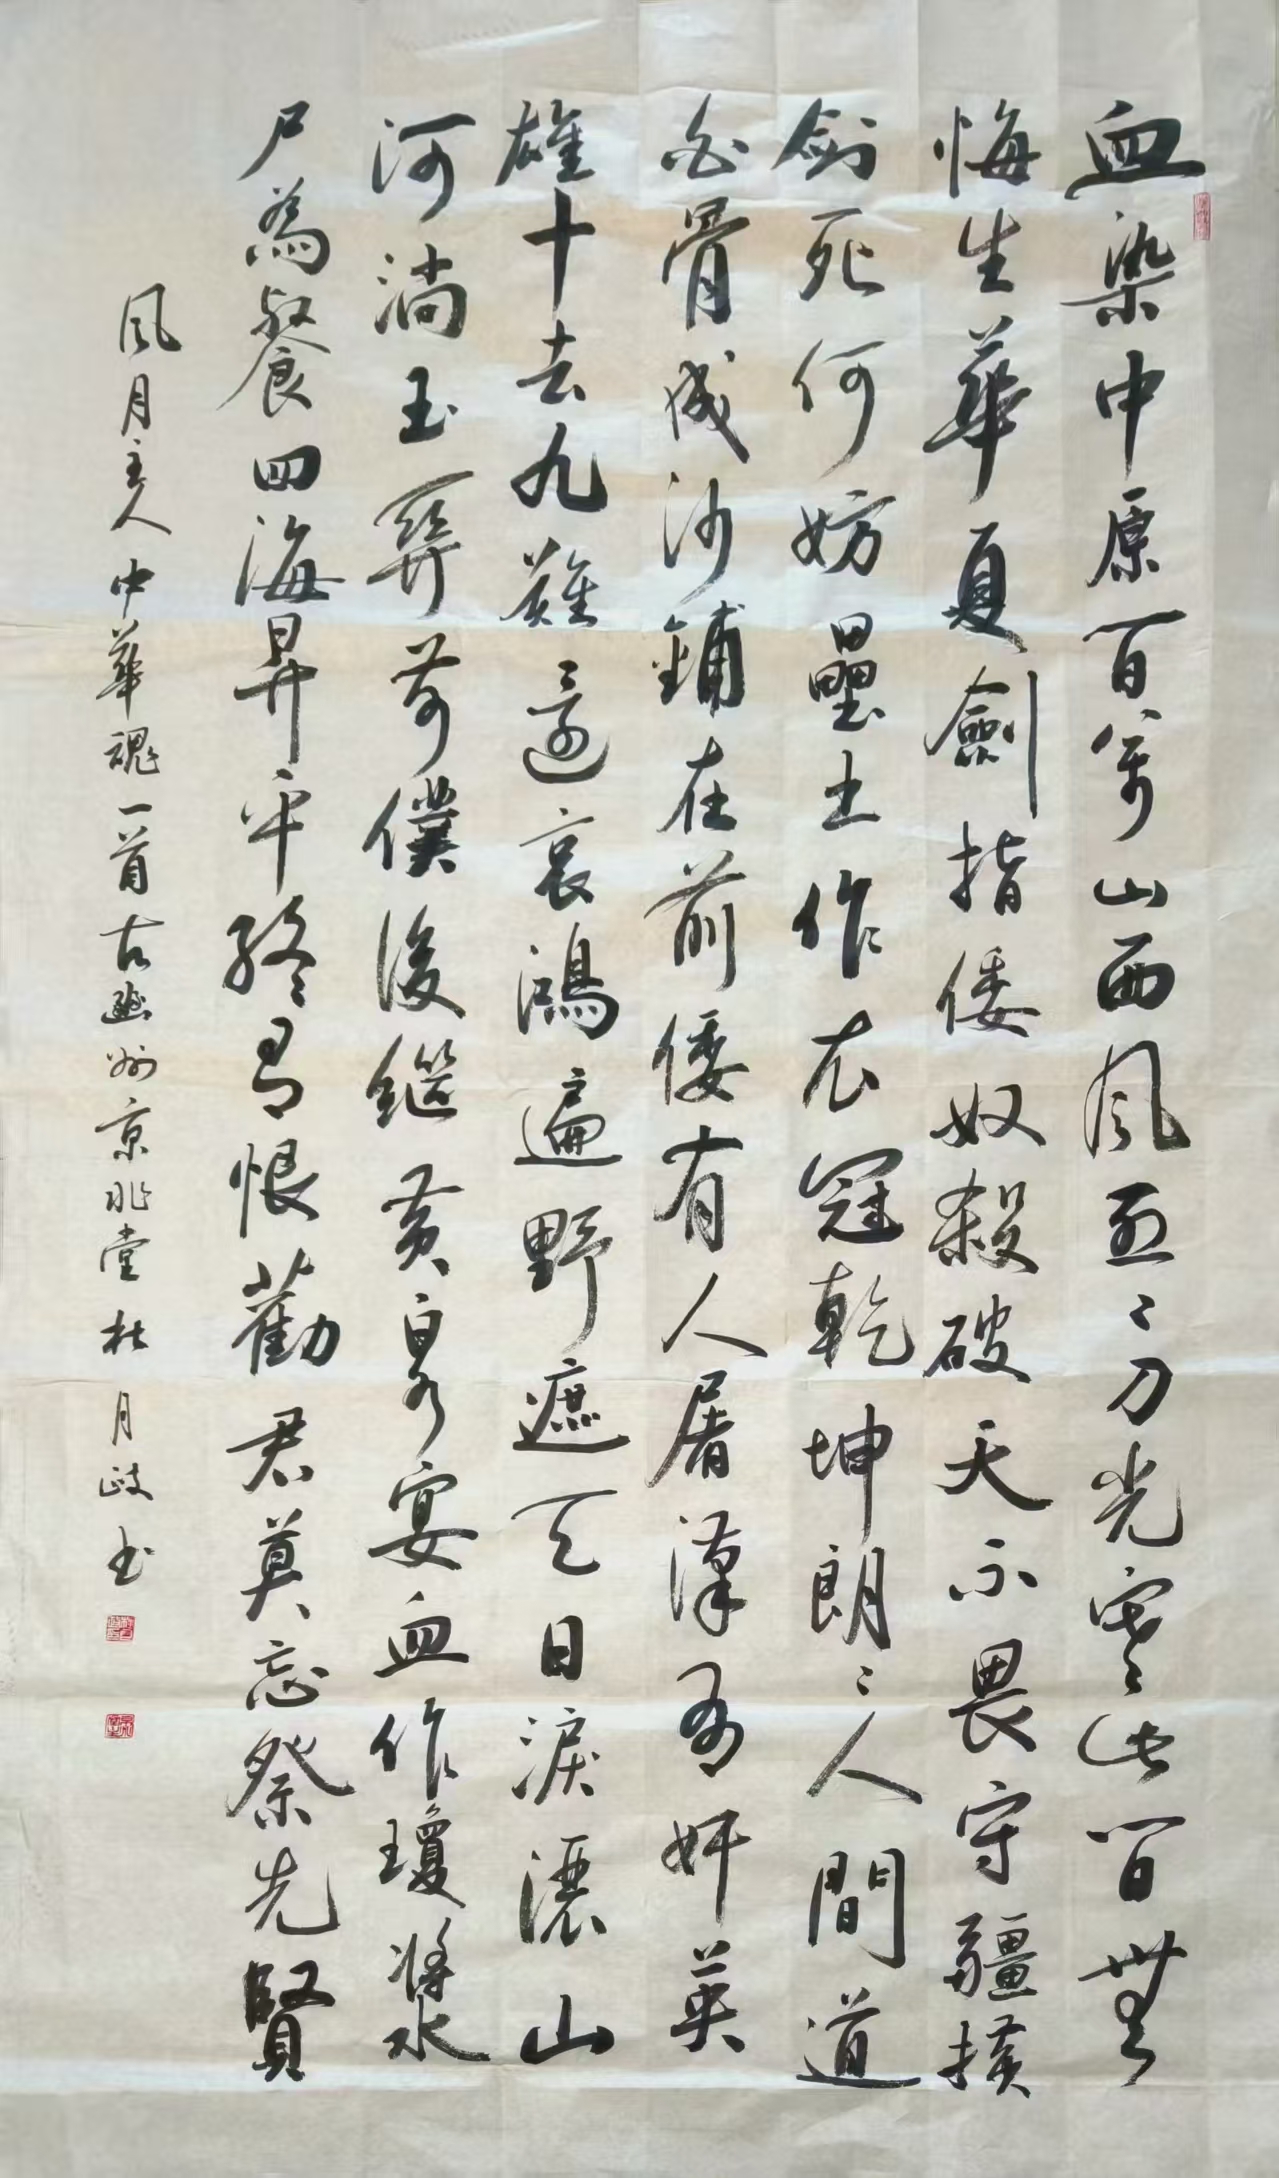 血染中原百萬山西风烈〻刀光寒此間無
悔生華夏劍指倭奴殺破天不畏守疆撲
劍死何妨壘土作衣冠乾坤朗〻人間道
白骨成沙鋪在前倭有人屠漢有奸英
雄十去九難還哀鴻遍野遮天日淚灑山
河淌玉 前僕後繼黄泉宴血作瓊漿
尸為餐四海昇平終有恨勸君莫忘祭先賢
風月主人中華魂一首古幽州京兆堂杜月歧书